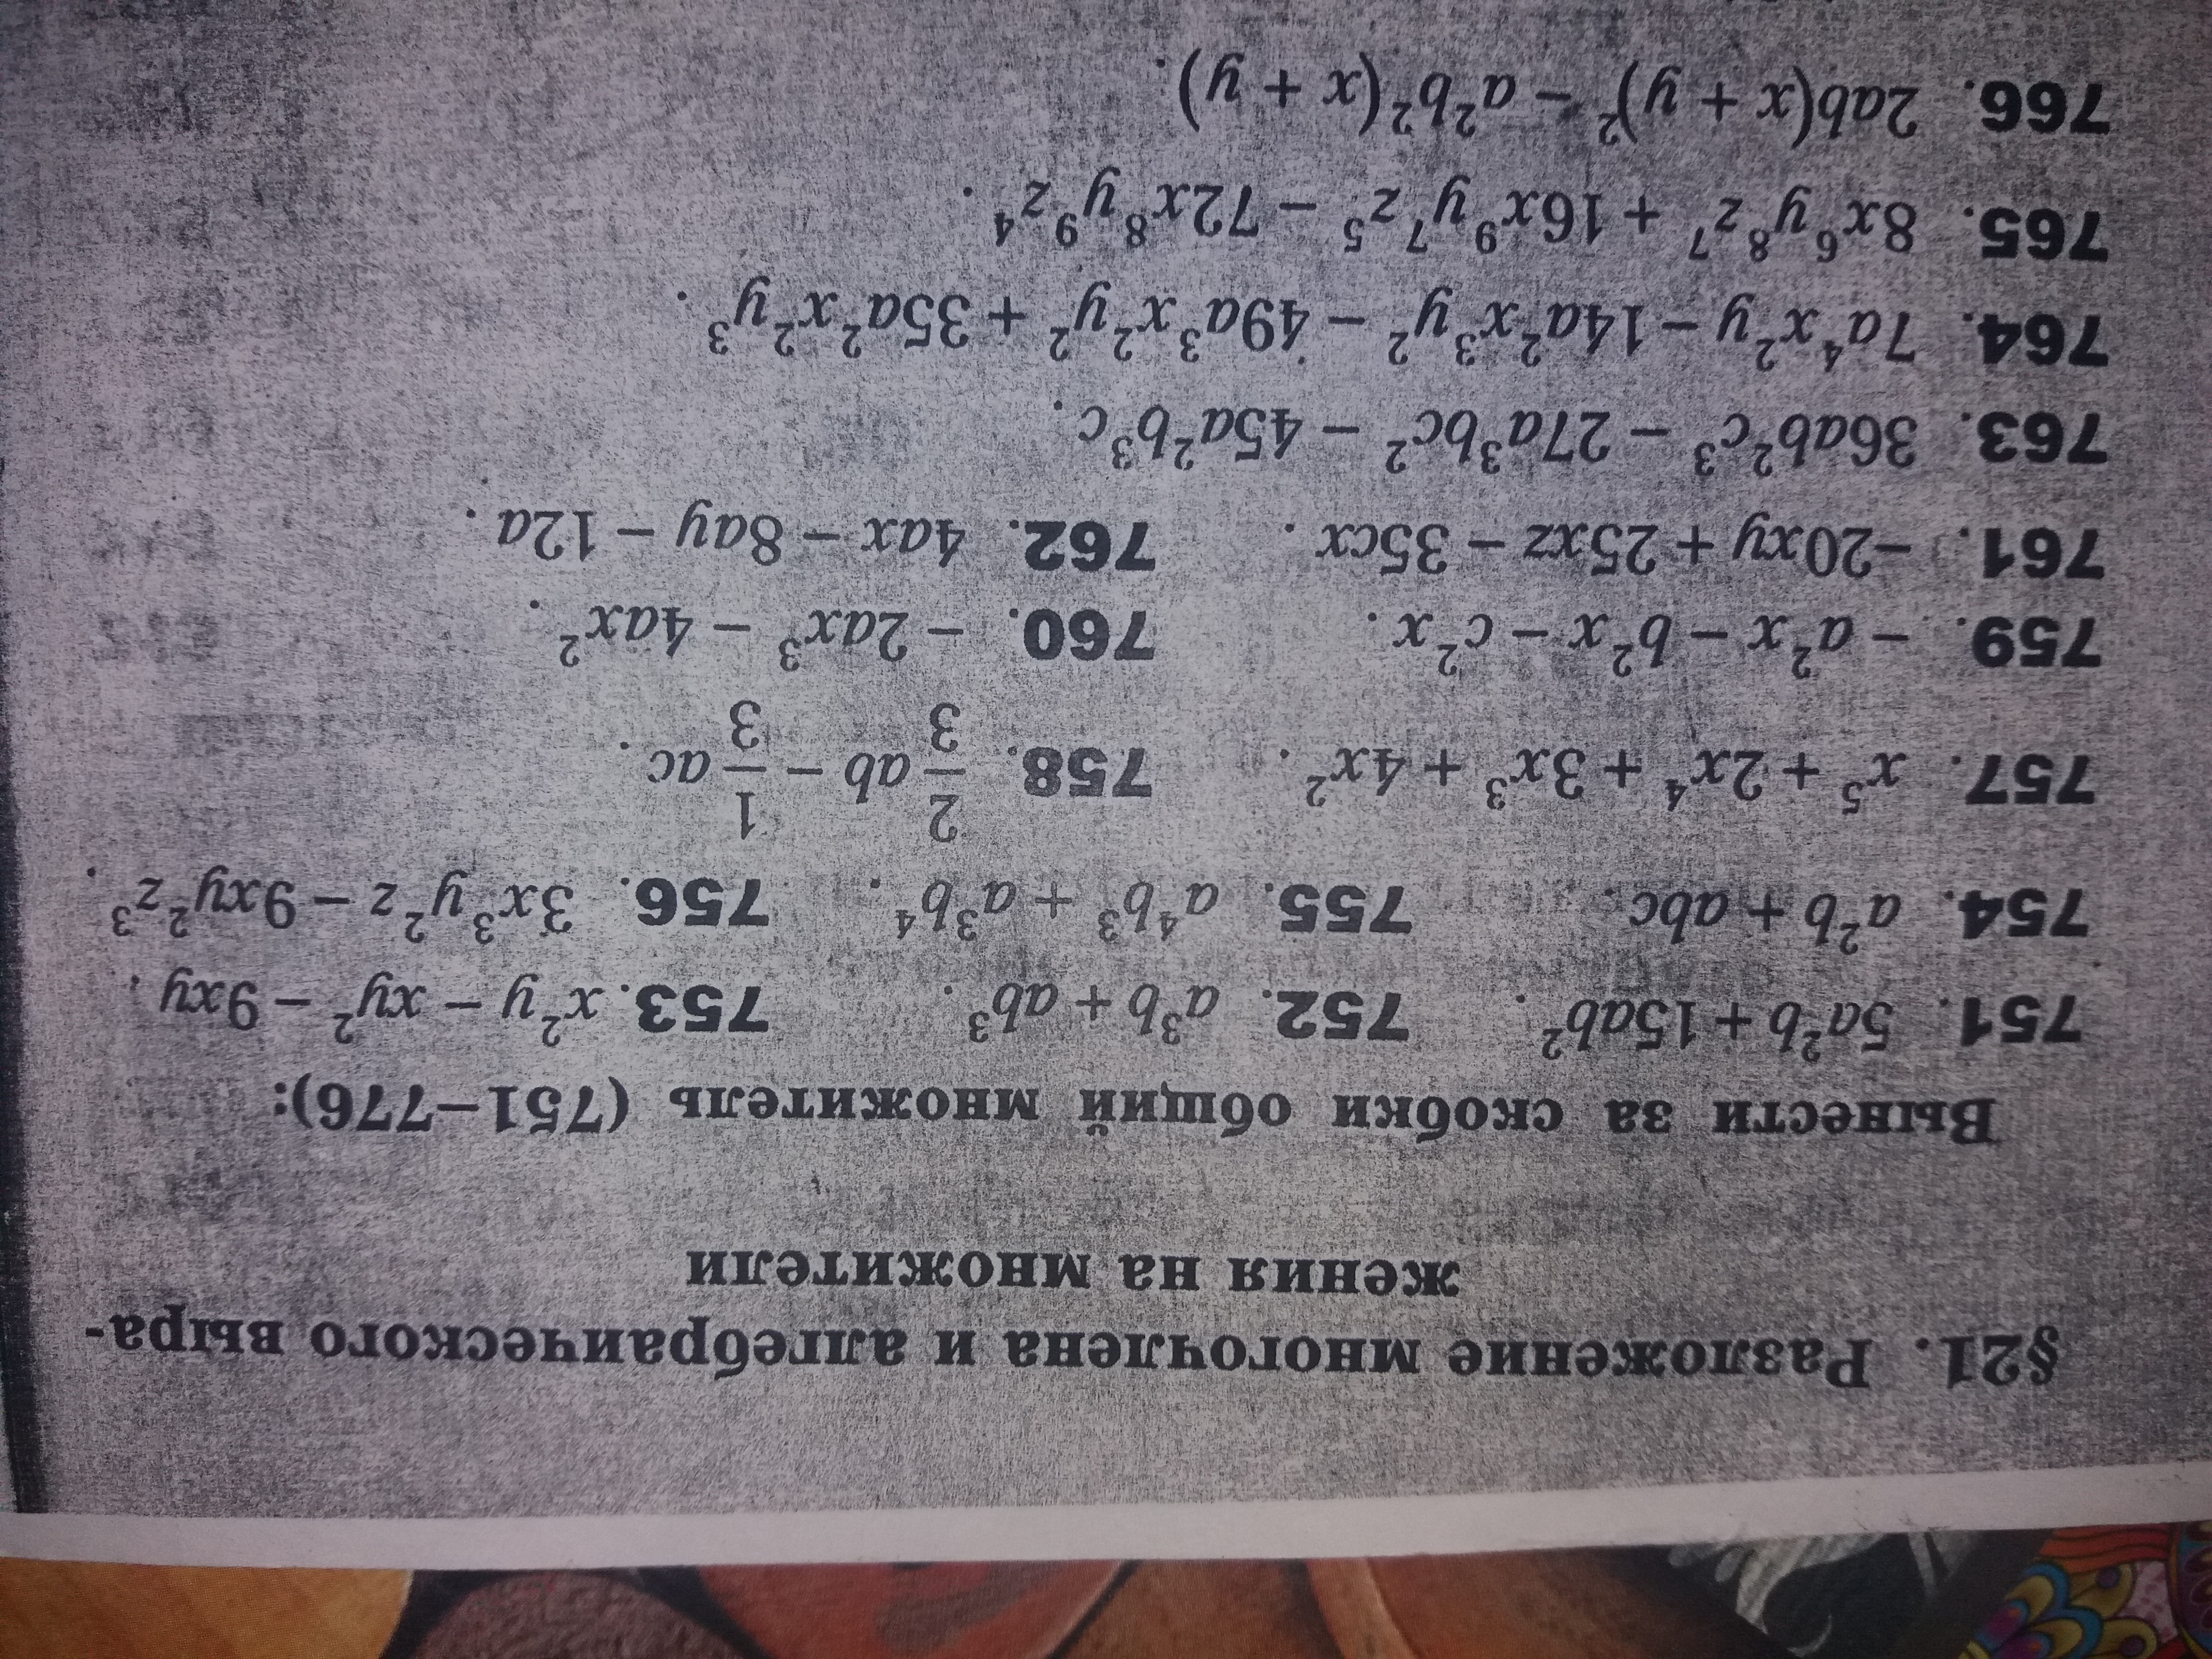 §21. Разложение многочлена и алгебраического выра-
жения на множители
Вынести за скобки общий множитель (751–776):
751. 5a²b + 15ab². 752. a³b + ab³. 753. x²y – xy² – 9xy.
754. a²b + abc. 755. a⁴b³ + a³b⁴. 756. 3x³y²z – 9xy²z³.
757. x⁵ + 2x⁴ + 3x³ + 4x². 758. 2/3 ab – 1/3 ac.
759. – a²x – b²x – c²x. 760. – 2ax³ – 4ax².
761. –20xy + 25xz – 35cx. 762. 4ax – 8ay – 12a.
763. 36ab²c³ – 27a³bc² – 45a²b³c.
764. 7a⁴x²y – 14a²x³y² – 49a³x²y² + 35a²x²y³.
765. 8x⁶y⁸z⁷ + 16x⁹y⁷z⁵ – 72x⁸y⁹z⁴.
766. 2ab(x + y)² – a²b²(x + y).